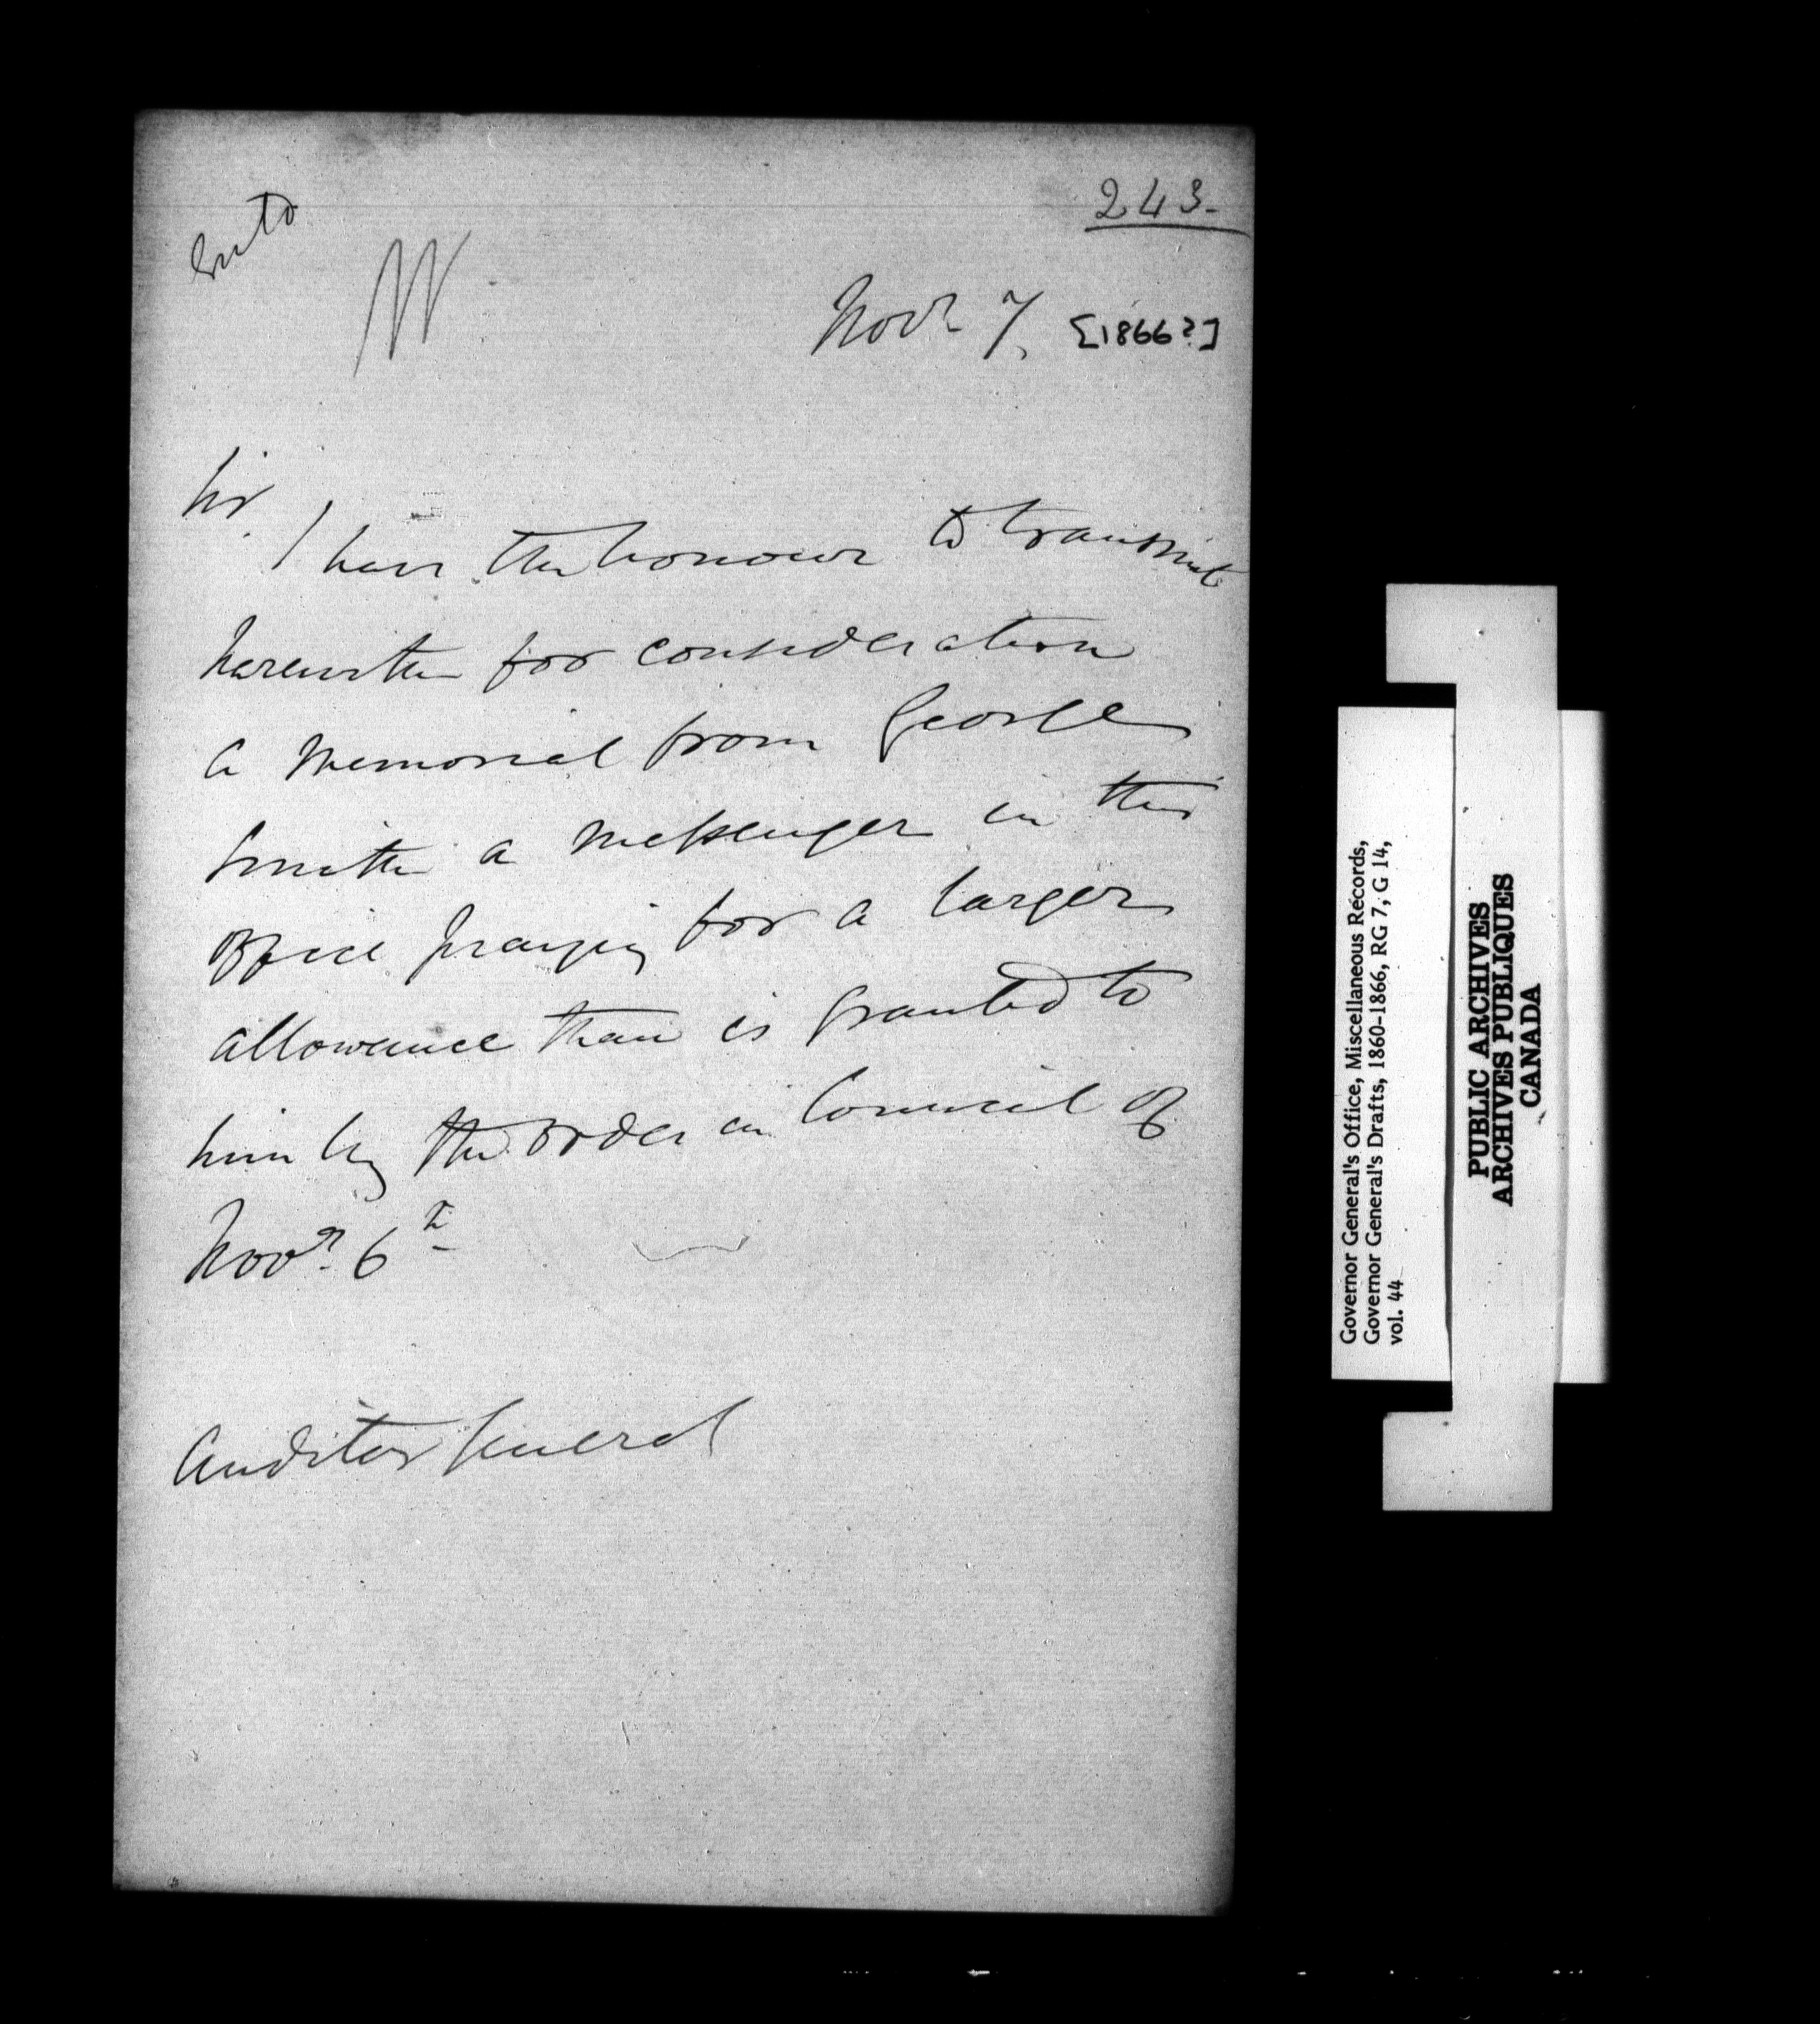 243.
Entd
W
Novr 7. [1866?]
Sir,
I have the honour to transmit
herewith for consideration
a Memorial from George
Smith a Messenger in this
Office praying for a larger
allowance than is granted to
him by the Order in Council of
Novr. 6th
Auditor General
Governor General's Office, Miscellaneous Records,
Governor General's Drafts, 1860-1866, RG 7, G 14,
vol. 44
PUBLIC ARCHIVES
ARCHIVES PUBLIQUES
CANADA